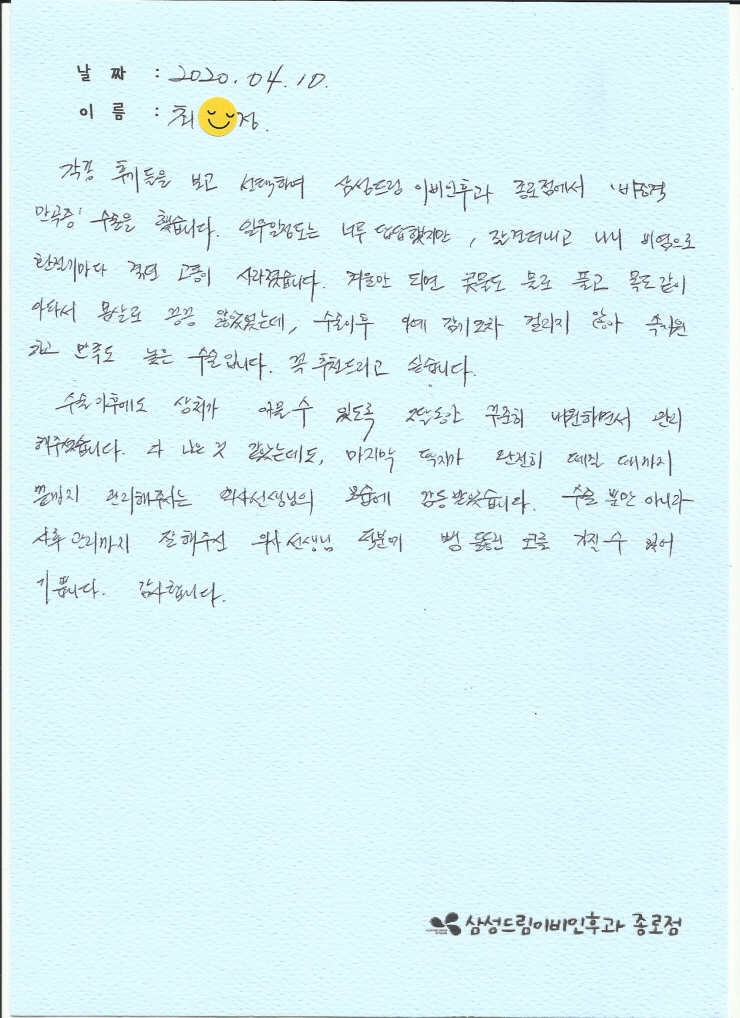 날 짜 : 2020.04.10.
이 름 : 최 정.
각종 후기들을 보고 선택하여 삼성드림 이비인후과 종로점에서 '비중격
만곡증' 수술을 했습니다. 일주일정도는 너무 답답했지만, 잘견뎌내고 나니 비염으로
환절기마다 겪던 고통이 사라졌습니다. 겨울만 되면 콧물도 들로 풀고 목도 같이
아파서 몸살로 끙끙 앓았었는데, 수술이후 감기조차 걸리지 않아 속시원
하고 만족도 높은 수술입니다. 꼭 추천드리고 싶습니다.
수술 후에도 상처가 아물 수 있도록 2달동안 꾸준히 내원하면서 관리
해주셨습니다. 다 나은 것 같았는데도, 마지막 딱지가 완전히 떼질 때까지
끝까지 관리해주시는 의사선생님의 모습에 감동받았습니다. 수술 뿐만 아니라
사후 관리까지 잘해주신 의사 선생님 덕분에 뻥 뚫린 코를 가질 수 있어
기쁩니다. 감사합니다.
삼성드림이비인후과 종로점